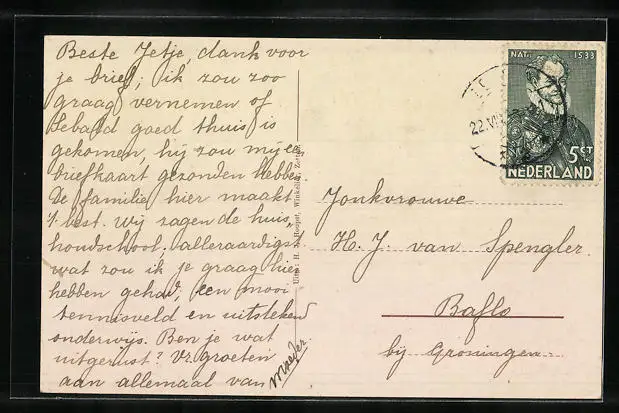 Beste Jetje, dank voor
je brief; ik zou zoo
graag vernemen of
Sebald goed thuis is
gekomen, hij zou mij een
briefkaart gezonden hebben.
De familie hier maakt
't best. Wij zagen de huis„
houdschool; alleraardigst
wat zou ik je graag hier
hebben gehad; een mooi
tennisveld en uitstekend
onderwijs. Ben je wat
uitgerust? Vr. groeten
aan allemaal van Moeder
Uitg.: H. Winkelier,
NAT. 1533
5CT
NEDERLAND
22.VI
Jonkvrouwe
H. J. van Spengler.
Baflo
bij Groningen